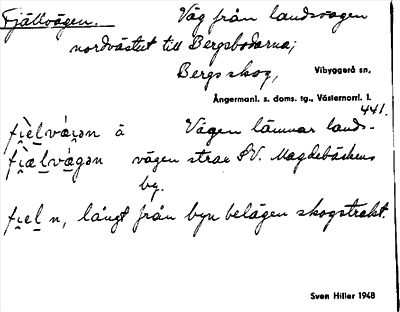 Fjällvägen. Väg från landsvägen
nordvästut till Bergsbodarna;
Bergs skog, Vibyggerå sn,
Ångermanl. s. doms. tg., Västernorrl. l.
441.
å Vägen lämnar lands-
vägen strax SV. Magdebäckens
by.
n, långt från byn belägen skogstrakt.
Sven Hiller 1948